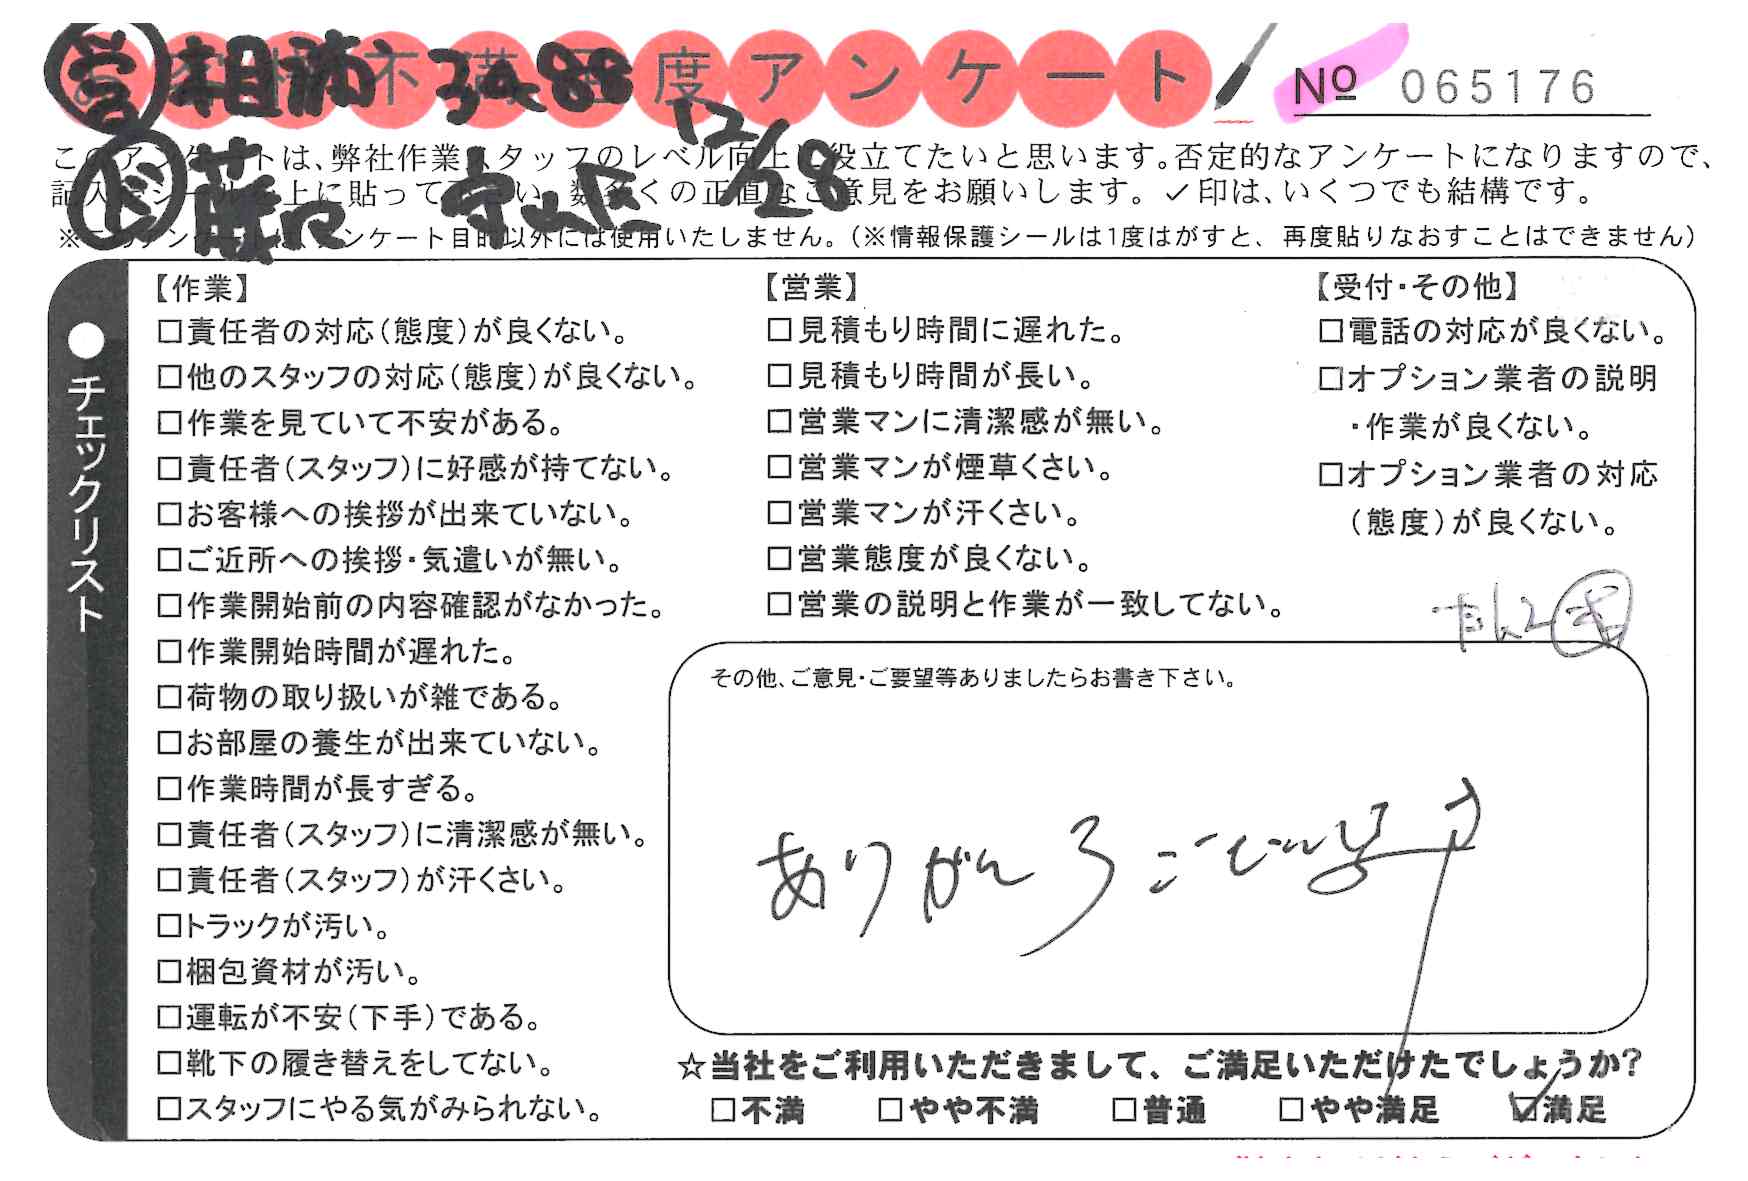 お客様不満足度アンケート
№ 065176
営 相浦 34-88
12/28
ド 藤口
このアンケートは、弊社作業スタッフのレベル向上に役立てたいと思います。否定的なアンケートになりますので、
記入後シールを上に貼って下さい。数多くの正直なご意見をお願いします。✓印は、いくつでも結構です。
※このアンケートは、アンケート目的以外には使用いたしません。(※情報保護シールは1度はがすと、再度貼りなおすことはできません)
●チェックリスト
【作業】
□責任者の対応(態度)が良くない。
□他のスタッフの対応(態度)が良くない。
□作業を見ていて不安がある。
□責任者(スタッフ)に好感が持てない。
□お客様への挨拶が出来ていない。
□ご近所への挨拶・気遣いが無い。
□作業開始前の内容確認がなかった。
□作業開始時間が遅れた。
□荷物の取り扱いが雑である。
□お部屋の養生が出来ていない。
□作業時間が長すぎる。
□責任者(スタッフ)に清潔感が無い。
□責任者(スタッフ)が汗くさい。
□トラックが汚い。
□梱包資材が汚い。
□運転が不安(下手)である。
□靴下の履き替えをしてない。
□スタッフにやる気がみられない。
【営業】
□見積もり時間に遅れた。
□見積もり時間が長い。
□営業マンに清潔感が無い。
□営業マンが煙草くさい。
□営業マンが汗くさい。
□営業態度が良くない。
□営業の説明と作業が一致してない。
【受付・その他】
□電話の対応が良くない。
□オプション業者の説明
・作業が良くない。
□オプション業者の対応
(態度)が良くない。
その他、ご意見・ご要望等ありましたらお書き下さい。
ありがとうございます
☆当社をご利用いただきまして、ご満足いただけたでしょうか?
□不満 □やや不満 □普通 □やや満足 ☑満足